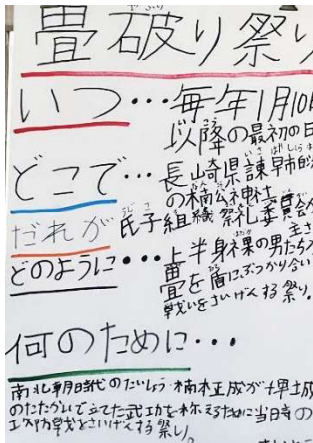 畳破り祭り
いつ…毎年1月10日
以降の最初の日
どこで…長崎県諫早市
の楠公神社
だれが 氏子組織 祭礼委員会が
主さ
どのように…上半身裸の男たち
畳を盾にぶつかり合い
戦いをさいげんする祭り。
何のために…
南北朝時代のたいしょう・楠木正成が
のたたかいで立てた武功を称えるために当日寺の
攻防戦をさいげんする祭り。